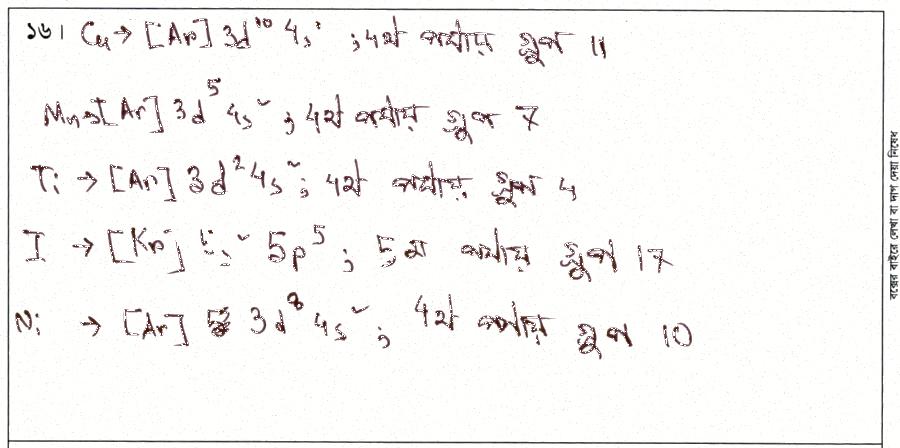 ১৬। Cu → [Ar] 3d¹⁰ 4s¹ ; 4র্থ পর্যায় গ্রুপ 11
Mn → [Ar] 3d⁵ 4s² ; 4র্থ পর্যায় গ্রুপ 7
Ti → [Ar] 3d² 4s² ; 4র্থ পর্যায় গ্রুপ 4
I → [Kr] 5s² 5p⁵ ; 5ম পর্যায় গ্রুপ 17
Ni → [Ar] 3d⁸ 4s² ; 4র্থ পর্যায় গ্রুপ 10
বক্সের বাইরে লেখা বা দাগ দেয়া নিষেধ